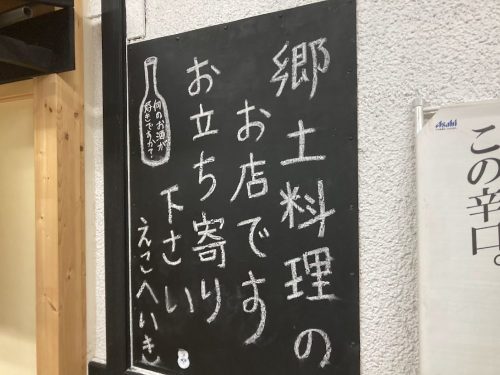 郷土料理の
お店です
お立ち寄り
下さい
えこへいき
何のお酒が
好きですか?
Asahi
この辛口。